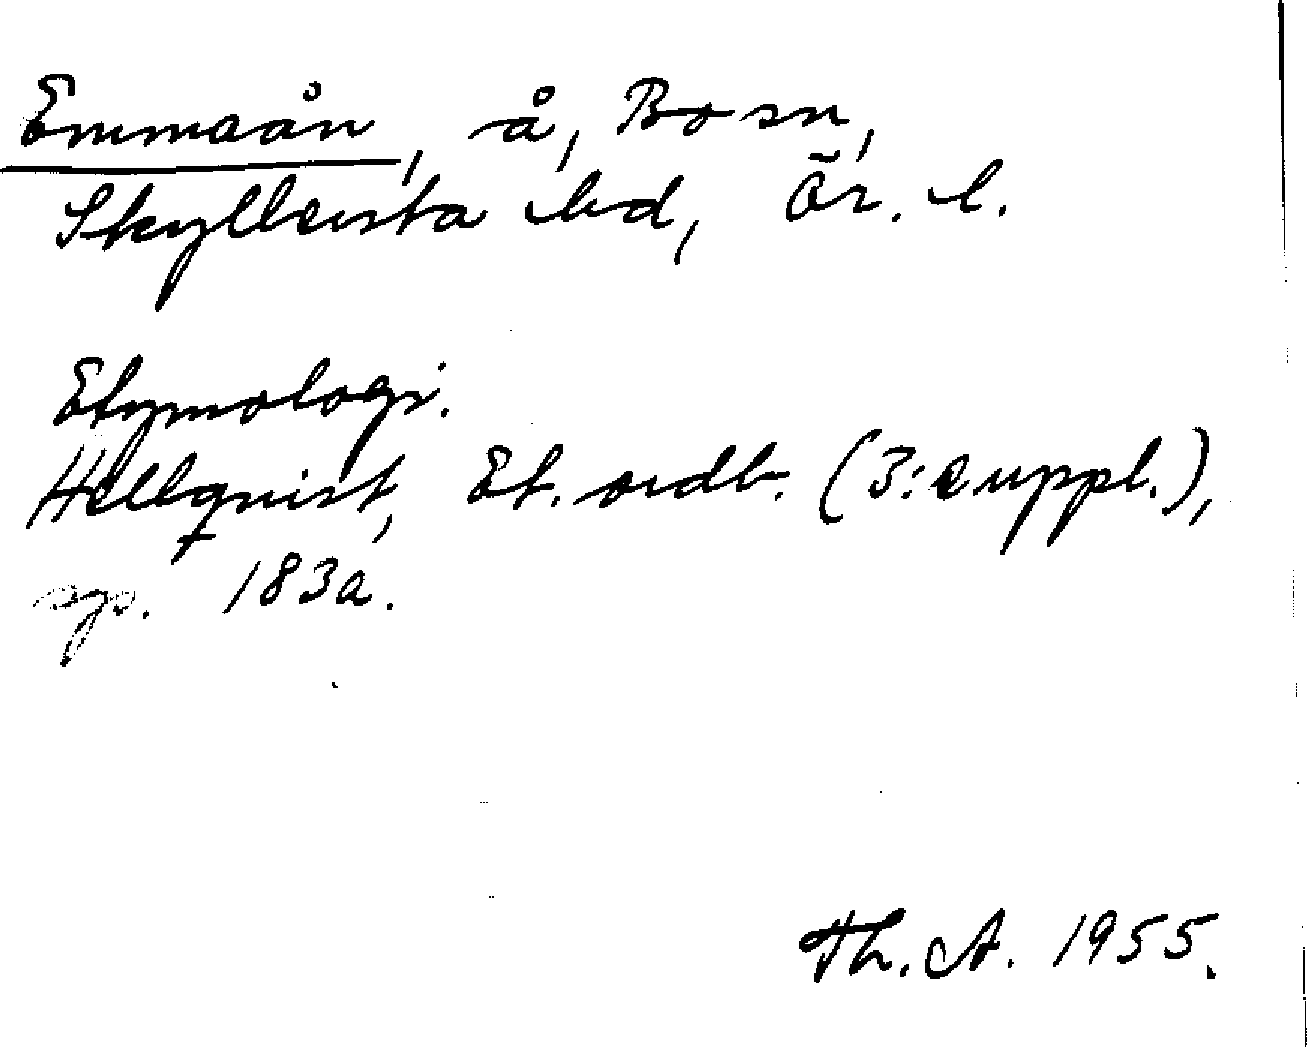 Emmaån, å, Bo sn,
Skyllersta hd, Ör. l.
Etymologi.
Hellquist, Et. ordb. (3: e uppl.),
sp. 183a.
Th. A. 1955.